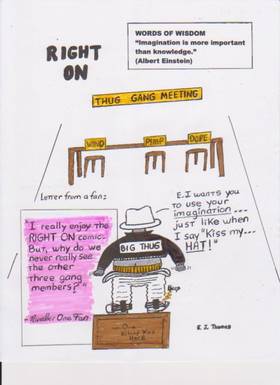 RIGHT ON
WORDS OF WISDOM
"Imagination is more important
than knowledge."
(Albert Einstein)
THUG GANG MEETING
WINO
PIMP
DOPE
Letter from a fan:
"I really enjoy the
RIGHT ON comic.
But, why do we
never really see
the other
three gang
members?"
Number One Fan
E.J. wants you
to use your
imagination...
just like when
I say "Kiss my...
HAT!"
BIG THUG
One
HERE
E. J. Thomas